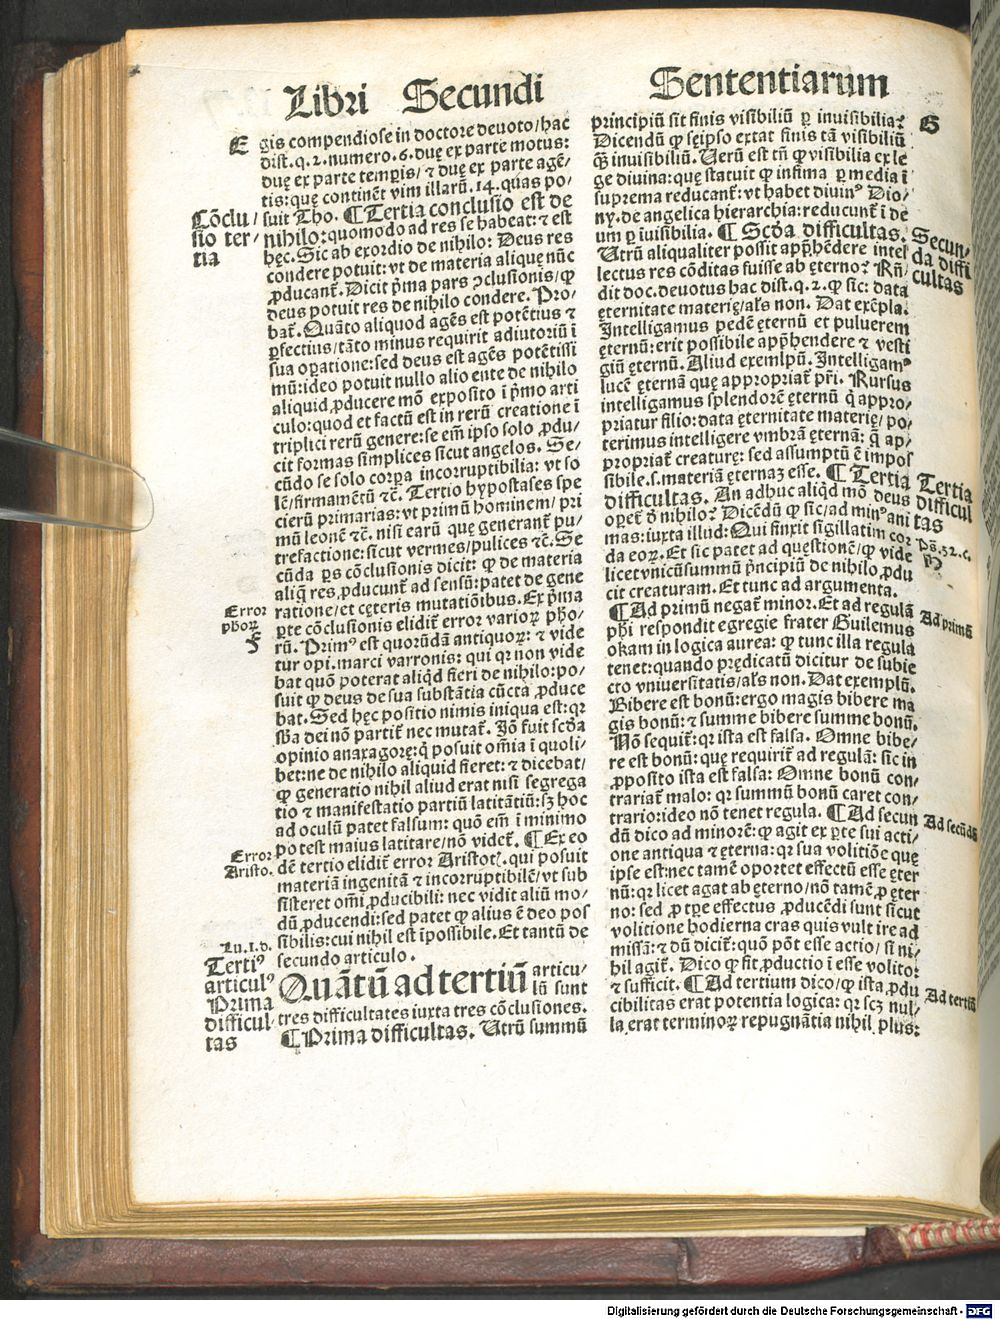 Libri Secundi
E
gis compendiose in doctore deuoto/hac
dist.q.2.numero.6.duę ex parte motus:
duę ex parte tempꝛis/ ⁊ duę ex parte agē/
tis:quę continēt vim illarū.14.quas po/
suit Tho. ¶Tertia conclusio est de
nihilo:quomodo ad res se habeat:⁊ est
hęc. Sic ab exordio de nihilo: Deus res
condere potuit:vt de materia alique nūc
ꝓducant̄. Dicit pꝛ̄ima pars ↄclusionis/ꝙ
deus potuit res de nihilo condere. Pro/
bat̄. Quāto aliquod agēs est potētius ⁊
ꝑfectius/tāto minus requirit adiutoriū ī
sua oꝑatione:sed deus est agēs potētissi
mū:ideo potuit nullo alio ente de nihilo
aliquid ꝓducere mō exposito ī pꝛ̄imo arti
culo:quod et factū est in rerū creatione ī
triplici rerū genere:se em̄ ipso solo ꝓdu/
cit formas simplices sicut angelos. Se/
cūdo se solo corpꝛa incorruptibilia: vt so
lē/firmamētū ⁊c̄. Tertio hypostases spe
cierū primarias:vt primū hominem/pri
mū leonē ⁊c̄. nisi earū quę generant̄ pu/
trefactione:sicut vermes/pulices ⁊c̄. Se
cūda ꝑs cōclusionis dicit: ꝙ de materia
aliq̄ res ꝓducunt̄ ad sensū:patet de gene
ratione/et cęteris mutatiōibus. Ex pꝛ̄ima
ꝑte cōclusionis elidit̄ error varioꝝ phō/
rū. Primꝰ est quorūdā antiquoꝝ: ⁊ vide
tur opi.marci varronis: qui qꝛ non vide
bat quō poterat aliqd̄ fieri de nihilo:po/
suit ꝙ deus de sua substātia cūcta ꝓduce
bat. Sed hęc positio nimis iniqua est:qꝛ
sb̄a dei nō partit̄ nec mutat̄. Jō fuit scd̄a
opinio anaxagorę:q̄ posuit om̄ia ī quoli/
bet:ne de nihilo aliquid fieret: ⁊ dicebat/
ꝙ generatio nihil aliud erat nisi segrega
tio ⁊ manifestatio partiū latitātiū:sꝫ hoc
ad oculū patet falsum: quō em̄ ī minimo
potest maius latitare/nō videt̄. ¶Ex eo
dē tertio elidit̄ error Aristot̄. qui posuit
materiā ingenitā ⁊ incorruptibilē/vt sub
sisteret om̄i ꝓducibili: nec vidit aliū mo/
dū ꝓducendi:sed patet ꝙ alius ē deo pos
sibilis:cui nihil est īpossibile. Et tantū de
secundo articulo.
Quātū ad tertiū articu/
lū sunt
tres difficultates iuxta tres cōclusiones.
¶Prima difficultas. Vtrū summū
Cōclu/
sio ter/
tia
Error
phoꝝ
F
Error
Aristo.
Lu.1.d.
Tertiꝰ
articulꝰ
Prima
difficul/
tas
Sententiarum
principiū sit finis visibiliū ꝑ inuisibilia?
Dicendū ꝙ seipso extat finis tā visibiliū
q̄ꝫ inuisibiliū. Verū est tn̄ ꝙ visibilia ex le
ge diuina: quę statuit ꝙ infima ꝑ media ī
suprema reducant̄: vt habet diuinꝰ Dio/
ny. de angelica hierarchia: reducunt̄ ī de
um ꝑ iuisibilia. ¶ Scd̄a difficultas.
Vtrū aliqualiter possit app̄hēdere intel
lectus res cōditas fuisse ab ęterno? Rn̄/
dit doc.deuotus hac dist.q.2.ꝙ sic: data
ęternitate materię/al̄s non. Dat exēpla.
Intelligamus pedē ęternū et puluerem
ęternū:erit possibile app̄hendere ⁊ vesti
giū ęternū. Aliud exemplū. Intelligamꝰ
lucē ęternā quę appropriat̄ pr̄i. Rursus
intelligamus splendorē ęternū q̄ appro/
priatur filio:data ęternitate materię/ po/
terimus intelligere vmbrā ęternā: q̄ ap/
propriat̄ creaturę: sed assumptū ē impos
sibile.s.materiā ęternaꝫ esse. ¶ Tertia
difficultas. An adhuc aliqd̄ mō deus
oꝑet̄ d̄ nihilo? Dicēdū ꝙ sic/ad minꝰ ani
mas:iuxta illud: Qui finxit sigillatim cor
da eoꝝ. Et sic patet ad quęstionē/ꝙ vide
licet vnicūsummū pn̄cipiū de nihilo ꝓdu
cit creaturam. Et tunc ad argumenta.
¶Ad primū negat̄ minor. Et ad regulā
phi respondit egregie frater Guilemus
okam in logica aurea: ꝙ tunc illa regula
tenet:quando prędicatū dicitur de subie
cto vniuersitatis/al̄s non. Dat exemplū.
Bibere est bonū:ergo magis bibere ma
gis bonū: ⁊ summe bibere summe bonū.
Nō sequit̄: qꝛ ista est falsa. Omne bibe/
re est bonū: quę requirit̄ ad regulā: sic in
ꝓposito ista est falsa: Omne bonū con/
trariat̄ malo: qꝛ summū bonū caret con/
trario:ideo nō tenet regula. ¶Ad secun
dū dico ad minorē:ꝙ agit ex ꝑte sui acti/
one antiqua ⁊ ęterna: qꝛ sua volitiōe quę
ipse est:nec tamē oportet effectū esse ęter
nū:qꝛ licet agat ab ęterno/nō tamē ꝓ ęter
no: sed ꝓ tp̄e effectus ꝓducēdi sunt sicut
volitione hodierna cras quis vult ire ad
missā: ⁊ dū dicit̄: quō pōt esse actio/ si ni/
hil agit̄. Dico ꝙ fit ꝓductio ī esse volito:
⁊ sufficit. ¶Ad tertium dico/ꝙ ista ꝓdu
cibilitas erat potentia logica: qꝛ scꝫ nul/
la erat terminoꝝ repugnātia nihil plus:
G
Secun/
da diffi
cultas
Tertia
difficul
tas
Ps̄.32.c.
H
Ad primū
Ad secūdū
Ad tertiū
Digitalisierung gefördert durch die Deutsche Forschungsgemeinschaft - DFG